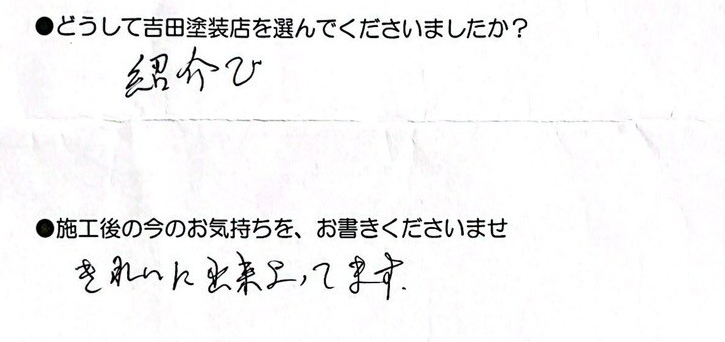 ●どうして吉田塗装店を選んでくださいましたか？
紹介で
●施工後の今のお気持ちを、お書きくださいませ
きれいに出来上ってます.